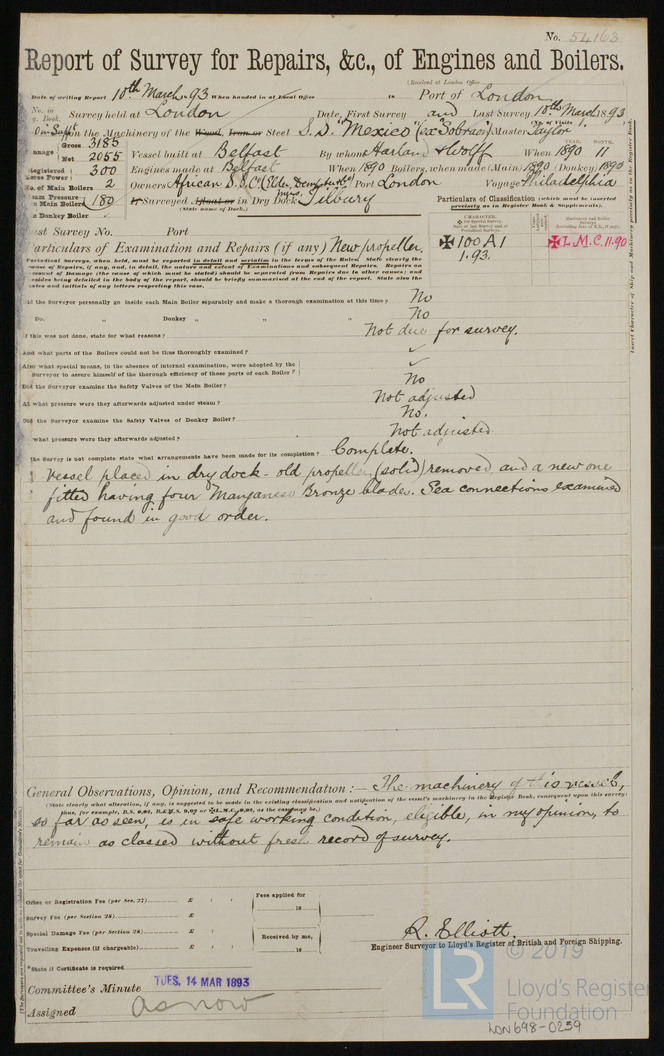 No. 54163
Report of Survey for Repairs, &c., of Engines and Boilers.
(Received at London Office
Date of writing Report 10th March 1893 When handed in at Local Office 18 Port of London
No. in
g. Book. Survey held at London Date, First Survey and Last Survey 10th March 1893
(No. of Visits 1)
On Suppt. on the Machinery of the Wood, Iron or Steel S.S. "Mexico" (ex "Sobraon") Master Taylor
onnage Gross 3185
Net 2055
Vessel built at Belfast By whom Harland & Wolff When 1890 11
YEAR. MONTH.
Registered 300
orse Power
Engines made at Belfast When 1890 Boilers, when made (Main) 1890 (Donkey) 1890
No. of Main Boilers 2
Owners African S.S. Co. (Elder, Dempster & Co Mgrs.) Port London Voyage Philadelphia
team Pressure
in Main Boilers 180
If Surveyed Afloat or in Dry Dock Tilbury
(State name of Dock.)
n Donkey Boiler
Particulars of Classification (which must be inserted
precisely as in Register Book & Supplements).
ast Survey No. Port
CHARACTER.
✠100A1
1.93.
✠L.M.C. 11.90
articulars of Examination and Repairs (if any) New propeller.
Periodical Surveys, when held, must be reported in detail and seriatim in the terms of the Rules. State clearly the
cause of Repairs, if any, and, in detail, the nature and extent of Examinations and subsequent Repairs. Repairs on
account of Damage (the cause of which must be stated) should be separated from Repairs due to other causes; and
besides being detailed in the body of the report, should be briefly summarised at the end of the report. State also the
dates and initials of any letters respecting this case.
Did the Surveyor personally go inside each Main Boiler separately and make a thorough examination at this time? No
Do. " Donkey " " " No
If this was not done, state for what reasons? Not due for survey.
And what parts of the Boilers could not be thus thoroughly examined? ✓
Also what special means, in the absence of internal examination, were adopted by the
Surveyor to assure himself of the thorough efficiency of those parts of each Boiler? ✓
Did the Surveyor examine the Safety Valves of the Main Boiler? No
At what pressure were they afterwards adjusted under steam? Not adjusted
Did the Surveyor examine the Safety Valves of Donkey Boiler? No.
what pressure were they afterwards adjusted? Not adjusted
the Survey is not complete state what arrangements have been made for its completion? Complete.
Vessel placed in dry dock - old propeller (solid) removed and a new one
fitted having four Manganese Bronze blades. Sea connections examined
and found in good order.
General Observations, Opinion, and Recommendation:— The machinery of this vessel,
(State clearly what alteration, if any, is suggested to be made in the existing classification and notification of the vessel's machinery in the Register Book, consequent upon this survey:
thus, for example, B.S. 9,92, B.&M.S. 9,92 or ✠L.M.C. 9,92, as the case may be.)
so far as seen, is in safe working condition, eligible, in my opinion, to
remain as classed without fresh record of survey.
Office or Registration Fee (per Sec. 27) £ : :
Fees applied for
18
Survey Fee (per Section 28) £ : :
Special Damage Fee (per Section 28) £ : :
Received by me,
18
Travelling Expenses (if chargeable) £ : :
R. Elliott.
Engineer Surveyor to Lloyd's Register of British and Foreign Shipping.
*State if Certificate is required
Committee's Minute TUES. 14 MAR 1893
Assigned as now
© 2019
LR
Lloyd's Register
Foundation
LDN698-0259
Insert Character of Ship and Machinery precisely as in the Register Book.